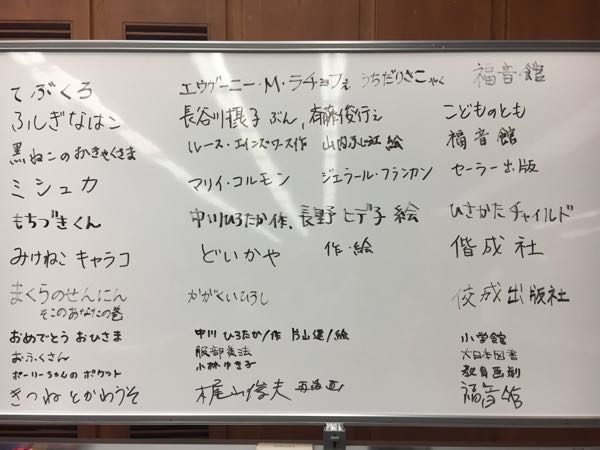 てぶくろ エウゲーニー・M・ラチョフえ うちだりさこやく 福音館
ふしぎなはこ 長谷川摂子 ぶん、斉藤俊行え こどものとも
黒ねこのおきゃくさま ルース・エインズワース作 山内ふじ江 絵 福音館
ミシュカ マリイ・コルモン ジェラール・フランカン セーラー出版
もちづきくん 中川ひろたか作、長野ヒデ子 絵 ひさかたチャイルド
みけねこキャラコ どいかや 作・絵 偕成社
まくらのせんにん かがくいひろし 佼成出版社
そこのあなたの巻
おめでとう おひさま 中川 ひろたか/作 片山健/絵 小学館
おふくさん 服部美法 大日本図書
ポーリーちゃんの ポケット 小林ゆき子 教育画劇
きつねとかわうそ 梶山俊夫 再話 画 福音館